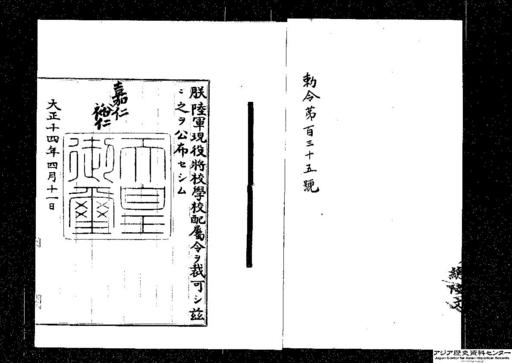 勅令第百三十五號
朕陸軍現役將校學校配屬令ヲ裁可シ茲
ニ之ヲ公布セシム
嘉仁
裕仁
天皇
御璽
大正十四年四月十一日
アジア歴史資料センター
Japan Center for Asian Historical Records